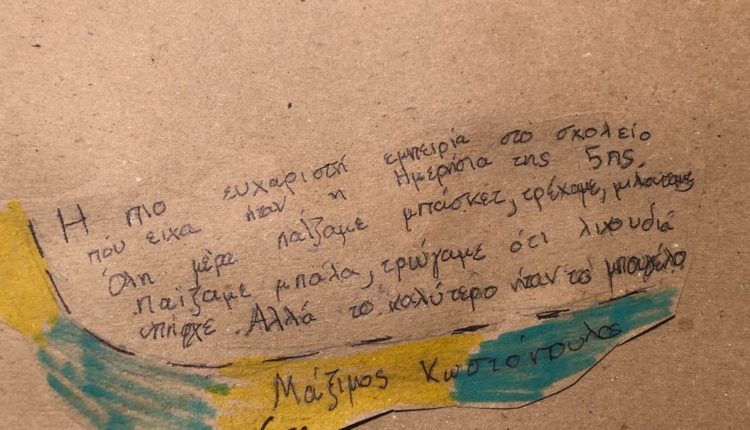 Η πιο ευχαριστή εμπειρία στο σχολείο
που ειχα ήταν η Ημερήσια της 5ης.
Όλη μέρα παίζαμε μπάσκετ, τρέχαμε, μιλούσαμε
παίζαμε μπάλα, τρώγαμε ότι λιχουδιά
υπήρχε. Αλλά το καλύτερο ήταν το μπουγέλο
Μάξιμος Κωστόπουλος